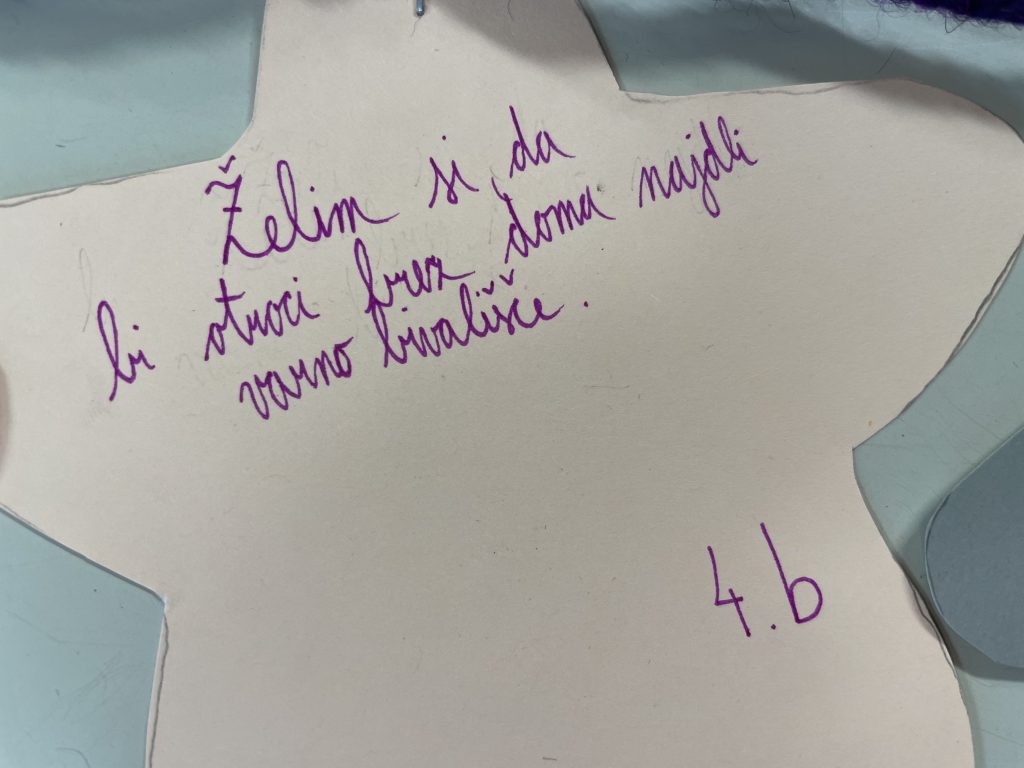 Želim si, da
bi otroci brez doma najdli
varno bivališče.
4.b